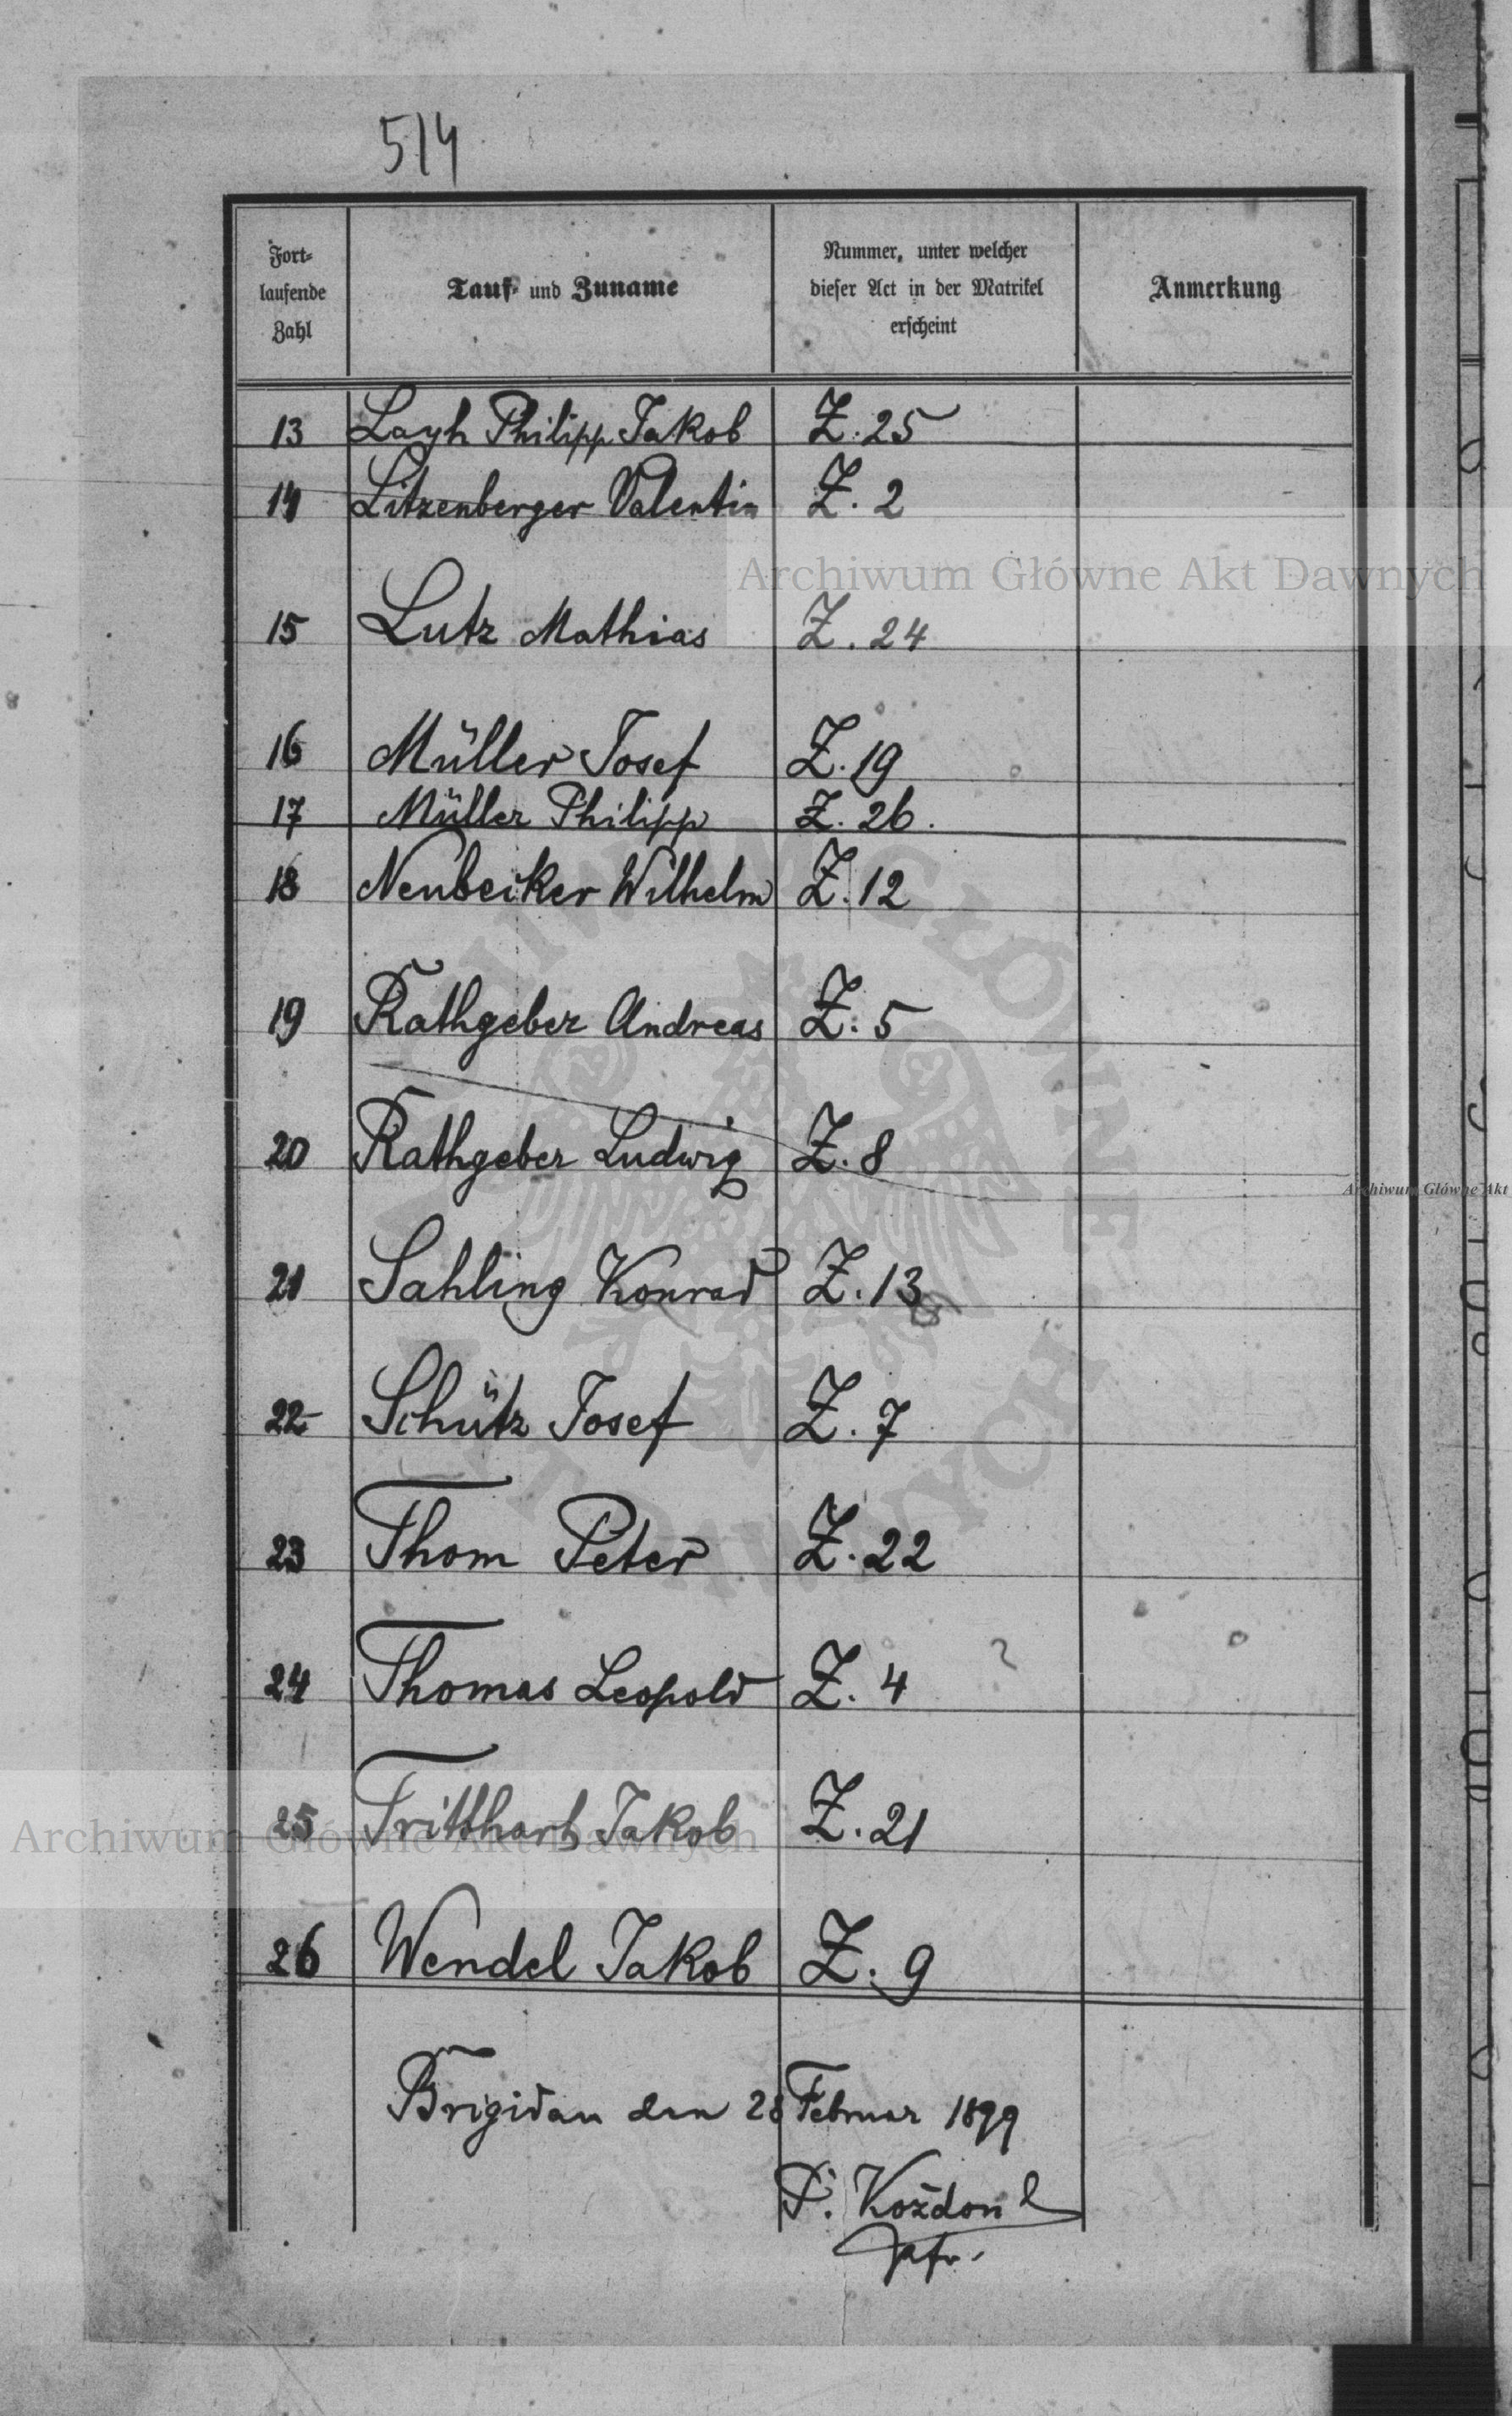 514
Fort-
laufende
Zahl
Tauf- und Zuname
Nummer, unter welcher
dieser Act in der Matrikel
erscheint
Anmerkung
13 Layh Philipp Jakob Z. 25
14 Litzenberger Valentin Z. 2
Archiwum Główne Akt Dawnych
15 Lutz Mathias Z. 24
16 Müller Josef Z. 19
17 Müller Philipp Z. 26.
18 Neubeiker Wilhelm Z. 12
19 Rathgeber Andreas Z. 5
20 Rathgeber Ludwig Z. 8
Archiwum Główne Akt
21 Sahling Konrad Z. 13
22 Schütz Josef Z. 7
23 Thom Peter Z. 22
24 Thomas Leopold Z. 4
25 Tritthart Jakob Z. 21
Archiwum Główne Akt Dawnych
26 Wendel Jakob Z. 9
Brigidau den 28 Februar 1899
P. Koždon
Pfr.